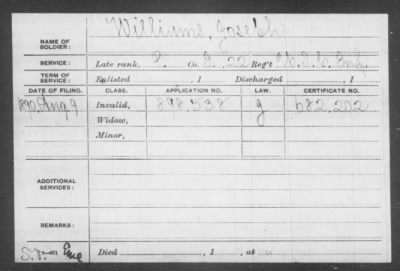 Williams, Joseph
NAME OF SOLDIER:
SERVICE: Late rank, P. Co. I, 22 Reg't U.S.C. Inf.
TERM OF SERVICE: Enlisted , 1 Discharged , 1
DATE OF FILING. CLASS. APPLICATION NO. LAW. CERTIFICATE NO.
1890 Aug. 9 Invalid, 898.538 g 682.202
Widow,
Minor,
ADDITIONAL SERVICES:
REMARKS:
Died , 1 , at